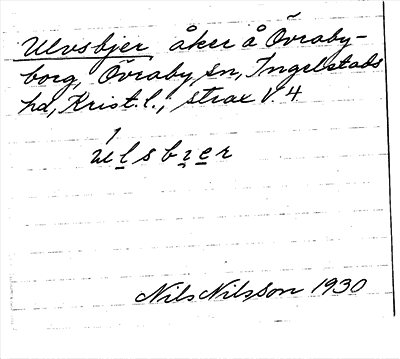 Ulvsbjer åker å Övraby-
borg, Övraby sn, Ingelstads
hd, Krist. l.; strax V. 4
1
ulsbɪer
Nils Nilsson 1930